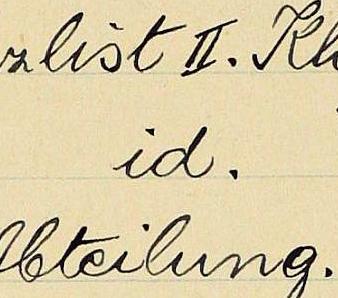 zlist II. Kl
id.
bteilung.